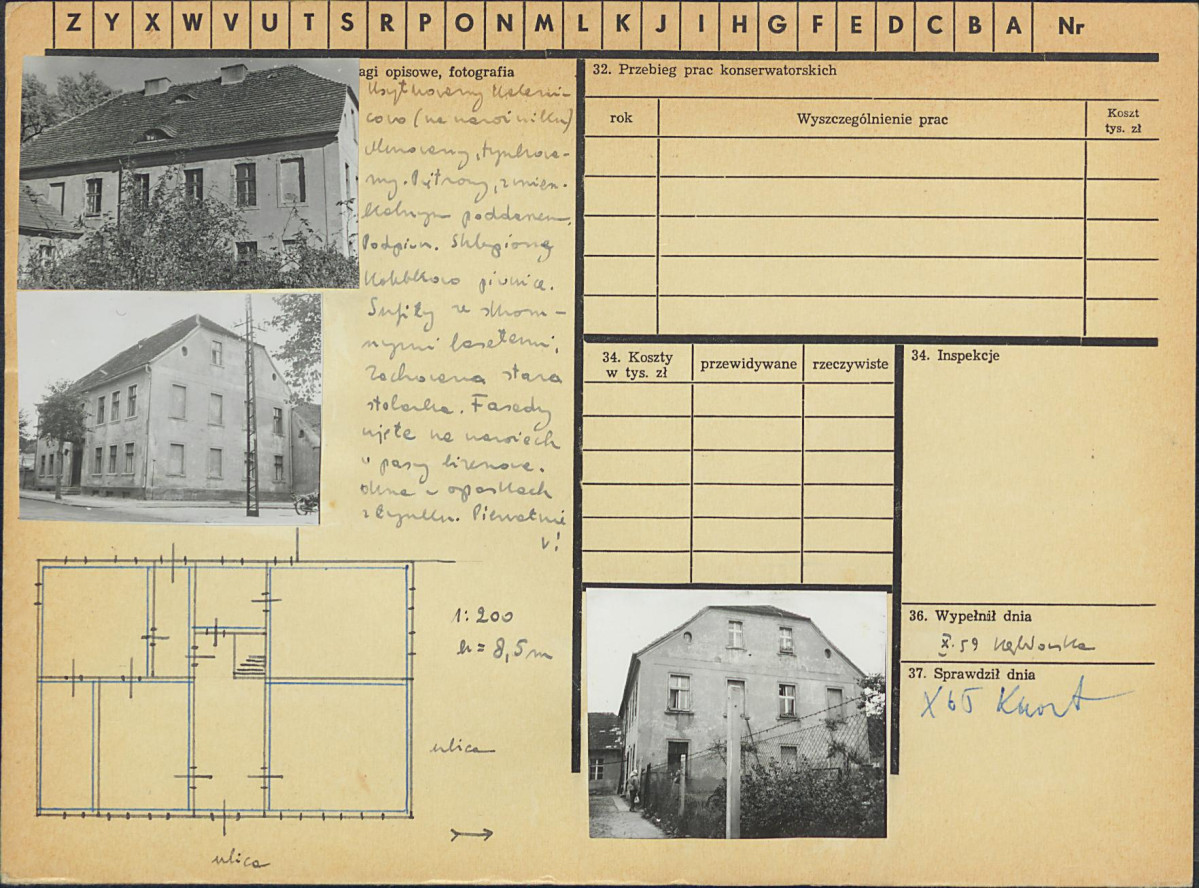 Z Y X W V U T S R P O N M L K J I H G F E D C B A Nr
agi opisowe, fotografia
Użytkowany
(na narożniku)
Murowany, tynkowa-
ny. Piętrowy, z miesz-
kalnym poddaszem.
Podpiw. Sklepione
kolebkowo piwnice.
Sufity ze skrom-
nymi fasetami.
Zachowana stara
stolarka. Fasady
ujęte na narożach
w pasy
okna w opaskach
z tynku. Pierwotnie
v!
32. Przebieg prac konserwatorskich
rok
Wyszczególnienie prac
Koszt
tys. zł
34. Koszty
w tys. zł
przewidywane
rzeczywiste
34. Inspekcje
36. Wypełnił dnia
X.59
37. Sprawdził dnia
X 65
1:200
h = 8,5 m
ulica
ulica